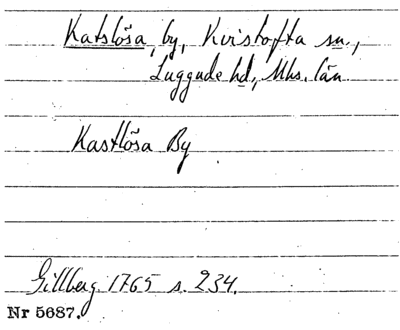 Katslösa, by, Kvistofta sn.,
Luggude hd., Mhs. län
Kastlösa By
Gillberg. 1765 s. 234.
Nr 5687.